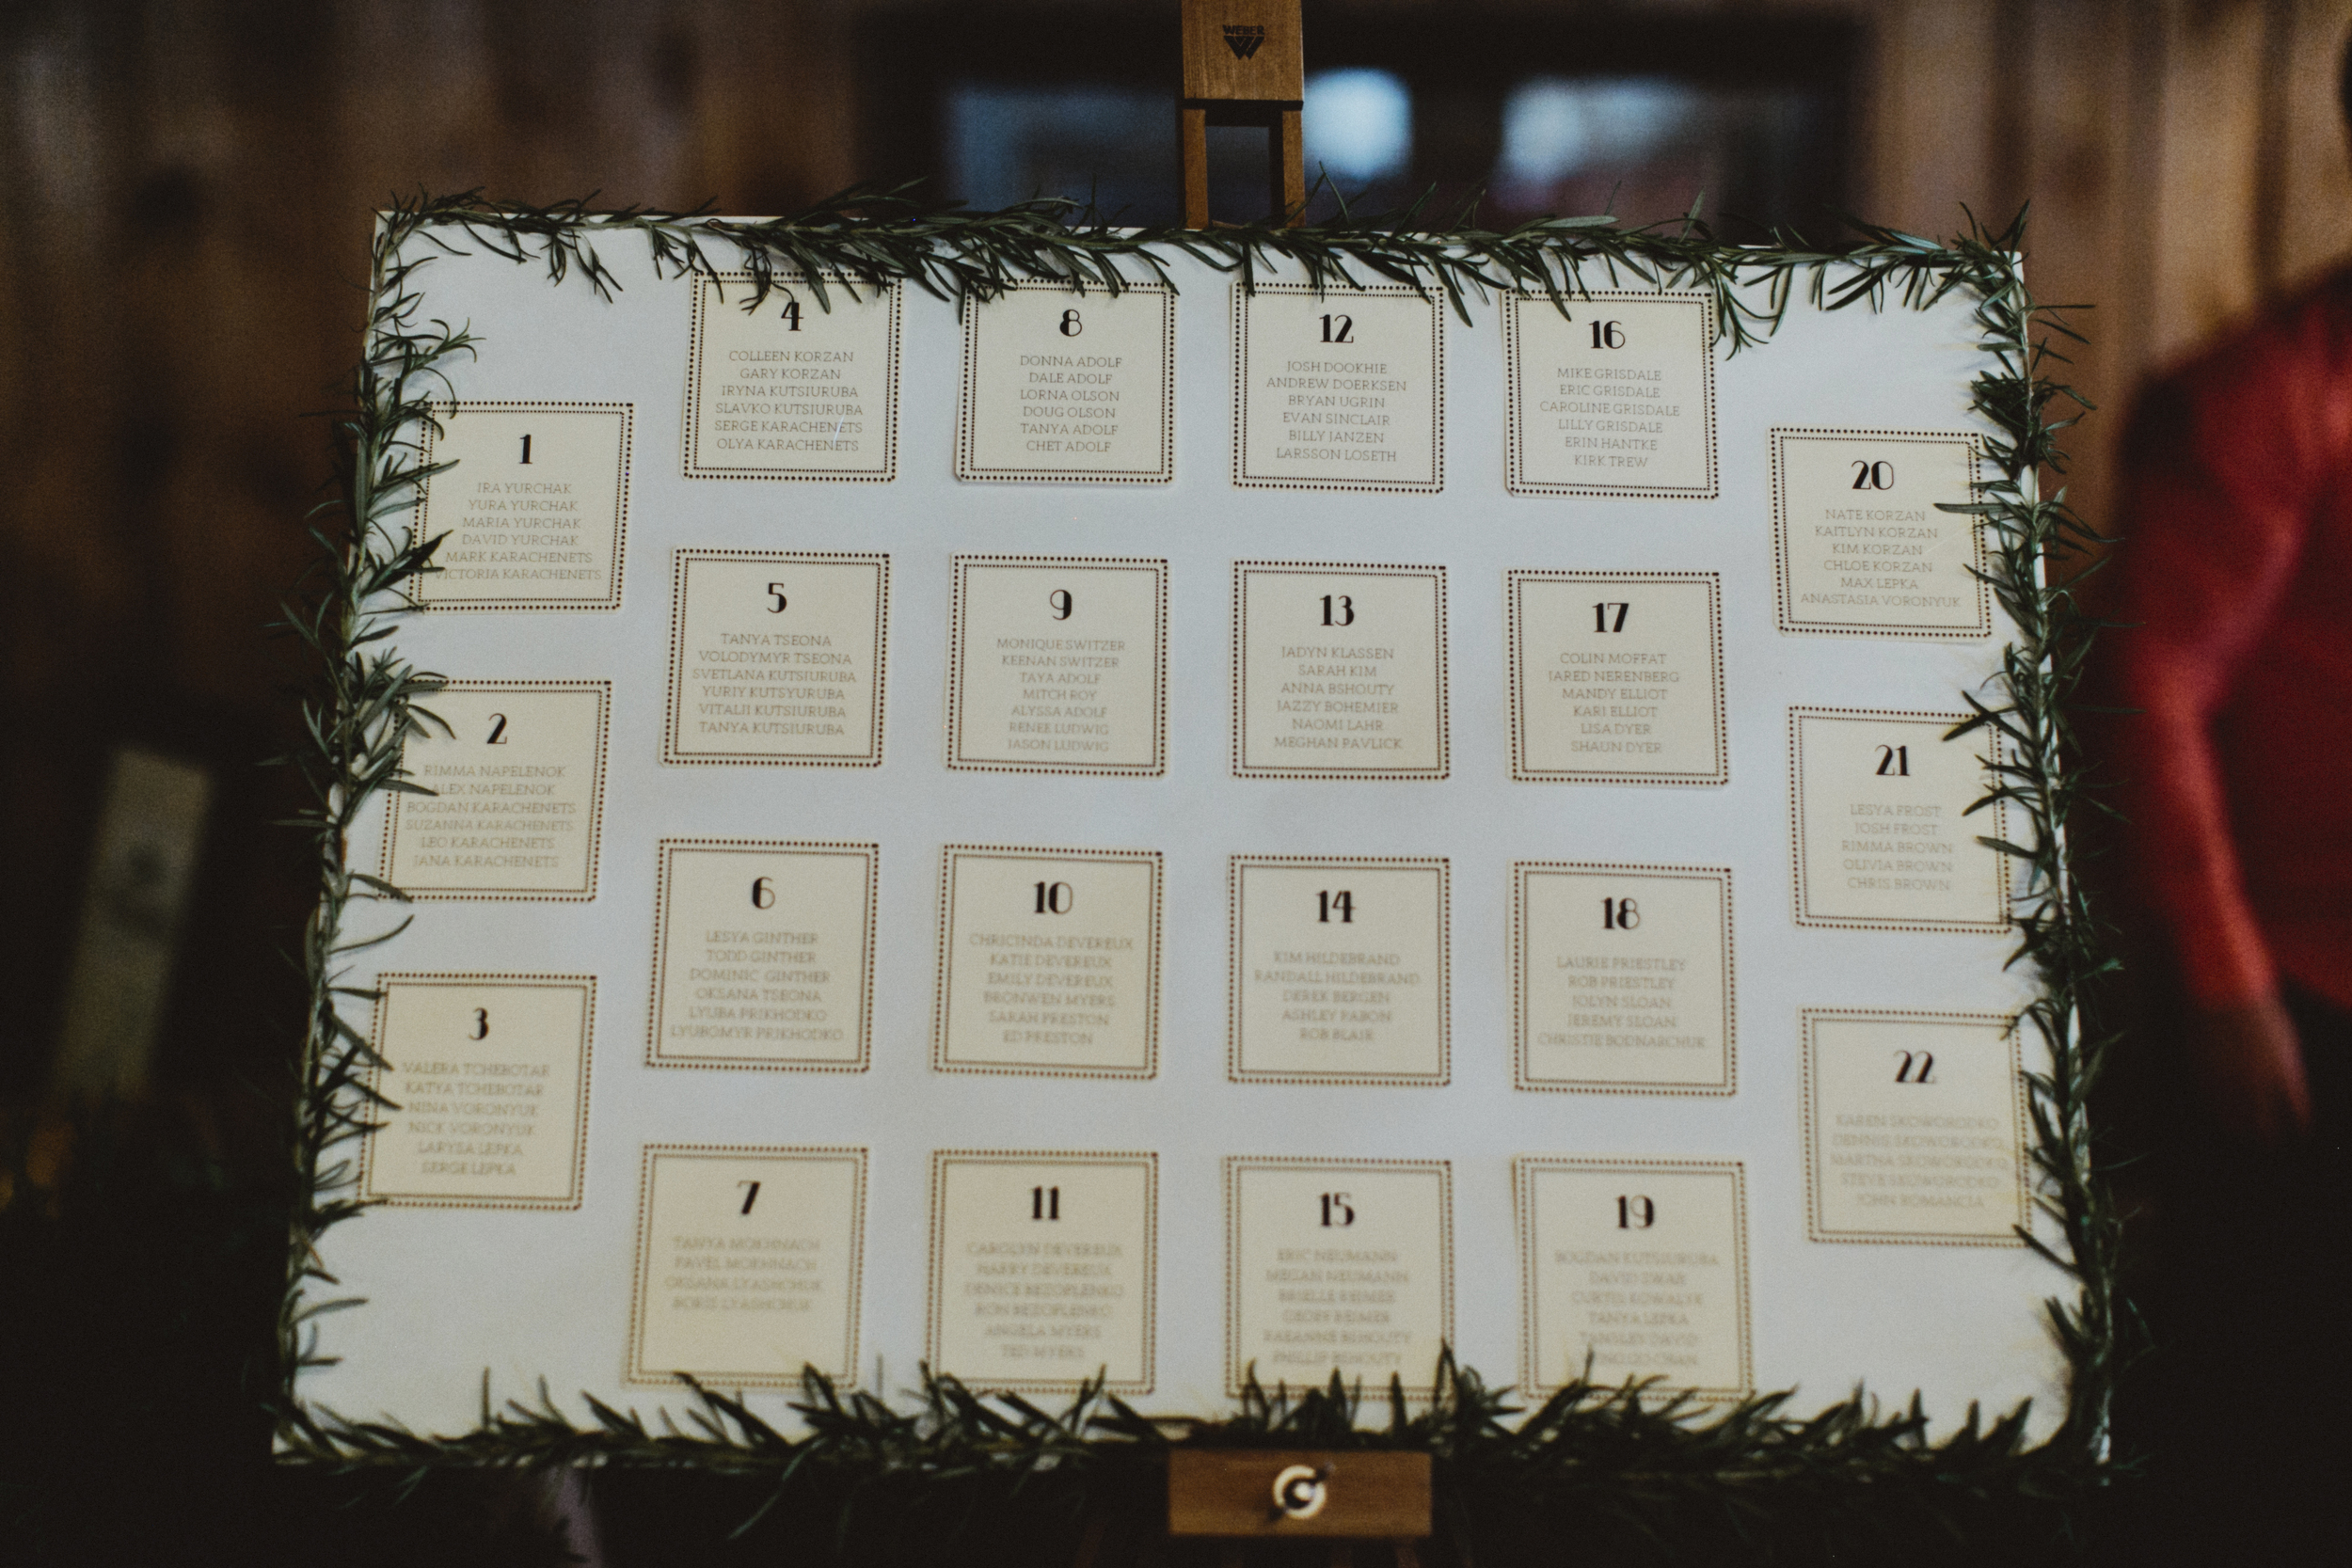 WEBER
1
IRA YURCHAK
YURA YURCHAK
MARIA YURCHAK
DAVID YURCHAK
MARK KARACHENETS
VICTORIA KARACHENETS
2
RIMMA NAPELENOK
ALEX NAPELENOK
BOGDAN KARACHENETS
SUZANNA KARACHENETS
LEO KARACHENETS
JANA KARACHENETS
3
VALERA TCHEBOTAR
KATYA TCHEBOTAR
NINA VORONYUK
NICK VORONYUK
LARYSA LEPKA
SERGE LEPKA
4
COLLEEN KORZAN
GARY KORZAN
IRYNA KUTSIURUBA
SLAVKO KUTSIURUBA
SERGE KARACHENETS
OLYA KARACHENETS
5
TANYA TSEONA
VOLODYMYR TSEONA
SVETLANA KUTSIURUBA
YURIY KUTSYURUBA
VITALII KUTSIURUBA
TANYA KUTSIURUBA
6
LESYA GINTHER
TODD GINTHER
DOMINIC GINTHER
OKSANA TSEONA
LYUBA PRIKHODKO
LYUBOMYR PRIKHODKO
7
TANYA MOKHNACH
PAVEL MOKHNACH
OKSANA LYASHCHUK
BORIS LYASHCHUK
8
DONNA ADOLF
DALE ADOLF
LORNA OLSON
DOUG OLSON
TANYA ADOLF
CHET ADOLF
9
MONIQUE SWITZER
KEENAN SWITZER
TAYA ADOLF
MITCH ROY
ALYSSA ADOLF
RENEE LUDWIG
JASON LUDWIG
10
CHRICINDA DEVEREUX
KATIE DEVEREUX
EMILY DEVEREUX
BRONWEN MYERS
SARAH PRESTON
ED PRESTON
11
CAROLYN DEVEREUX
HARRY DEVEREUX
DENICE BEZOFLENKO
RON BEZOFLENKO
ANGELA MYERS
TED MYERS
12
JOSH DOOKHIE
ANDREW DOERKSEN
BRYAN UGRIN
EVAN SINCLAIR
BILLY JANZEN
LARSSON LOSETH
13
JADYN KLASSEN
SARAH KIM
ANNA BSHOUTY
JAZZY BOHEMIER
NAOMI LAHR
MEGHAN PAVLICK
14
KIM HILDEBRAND
RANDALL HILDEBRAND
DEREK BERGEN
ASHLEY PABON
ROB BLAIR
15
ERIC NEUMANN
MEGAN NEUMANN
BRIELLE REIMER
GEOFF REIMER
BSHOUTY
PHILLIP BSHOUTY
16
MIKE GRISDALE
ERIC GRISDALE
CAROLINE GRISDALE
LILLY GRISDALE
ERIN HANTKE
KIRK TREW
17
COLIN MOFFAT
JARED NERENBERG
MANDY ELLIOT
KARI ELLIOT
LISA DYER
SHAUN DYER
18
LAURIE PRIESTLEY
ROB PRIESTLEY
JOLYN SLOAN
JEREMY SLOAN
CHRISTIE BODNARCHUK
19
BOGDAN KUTSIURUBA
DAVID
CURTIS KOWALYK
TANYA LEPKA
DAVID
20
NATE KORZAN
KAITLYN KORZAN
KIM KORZAN
CHLOE KORZAN
MAX LEPKA
ANASTASIA VORONYUK
21
LESYA FROST
JOSH FROST
RIMMA BROWN
OLIVIA BROWN
CHRIS BROWN
22
KAREN SKOWORODKO
DENNIS SKOWORODKO
MARTHA SKOWORODKO
STEVE SKOWORODKO
JOHN ROMANCIA